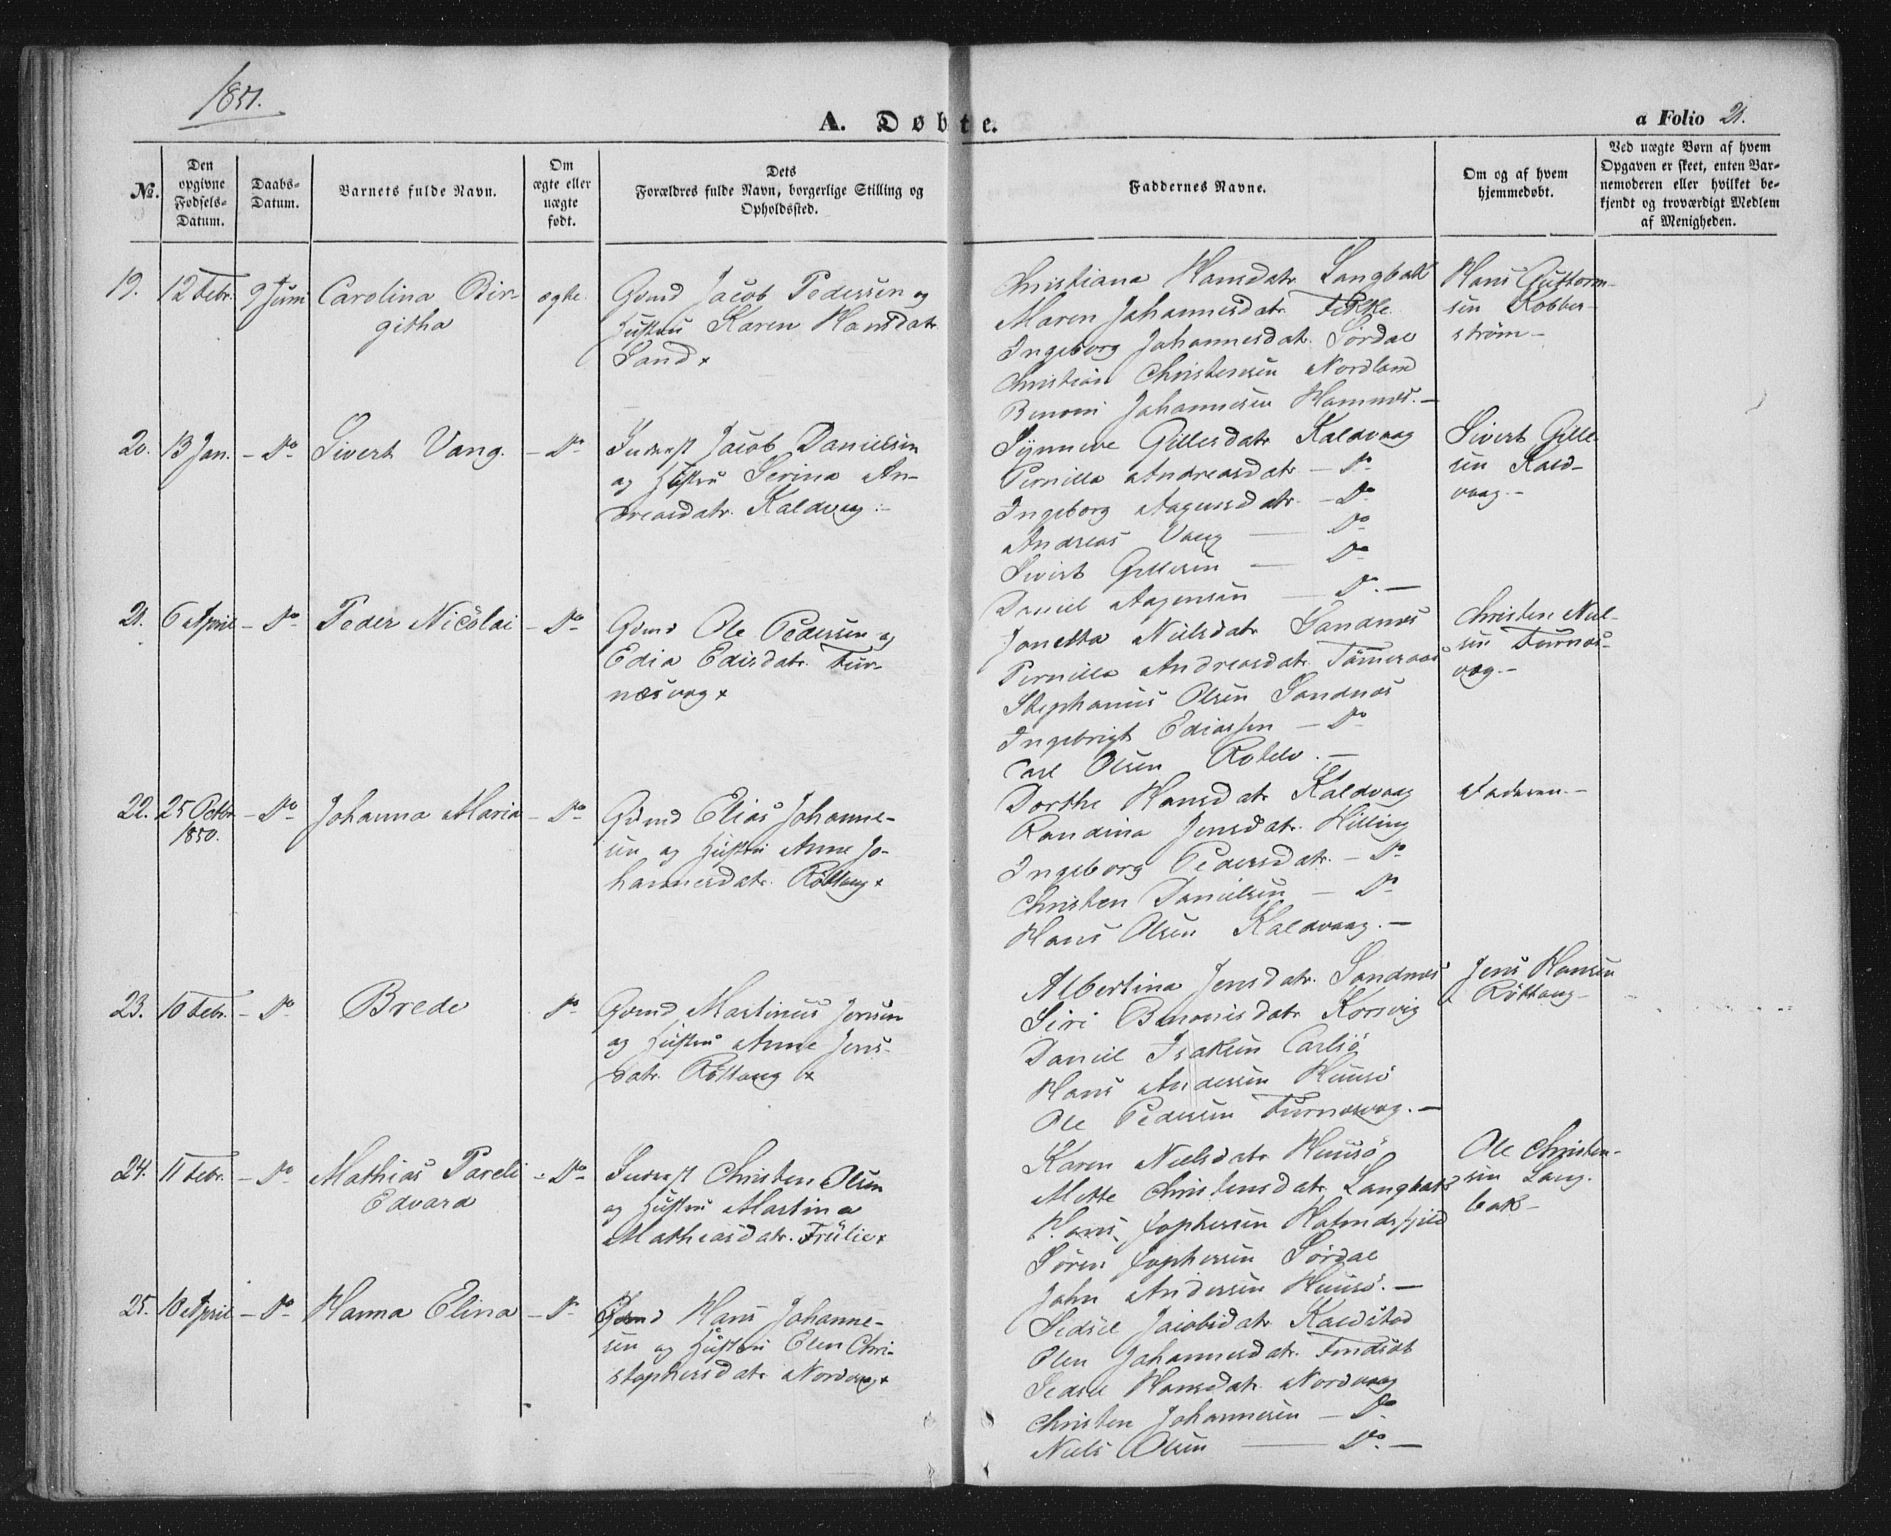 1851.
A. Døbte.
a Folio 21.
No.
Den opgivne Fødsels-Datum.
Daabs-Datum.
Barnets fulde Navn.
Om ægte eller uægte født.
Dets Forældres fulde Navn, borgerlige Stilling og Opholdssted.
Faddernes Navne.
Om og af hvem hjemmedøbt.
Ved uægte Børn af hvem Opgaven er skeet, enten Barnemoderen eller hvilket bekjendt og troværdigt Medlem af Menigheden.
19. 12 Febr. 9 Juni Carolina Bir- ægte. Gmd Jacob Pedersen og
githa Hustru Karen Hansdatr
Sand
Christiana Hansdatr Langbak
Maren Johannesdatr
Ingeborg Johannesdatr. Sørdal
Christian Christensen Nordland
Benoni Johannesen Hamnes.-
Hans Guttorm-
sen Kobber-
strøm-
20. 13 Jan. - Do Sivert Vang. - Do Inderst Jacob Danielsen
og Hustru Serina An-
dreasdatr. Kaldvag.-
Synneve Gillesdatr Kaldvaag
Pernilla Andreasdatr - Do
Ingeborg Aagensdatr. - Do
Andreas Vang - Do
Sivert Gillesen - Do
Daniel Aagensen - Do.-
Sivert Gille-
sen Kald-
vaag.-
21. 6 April - Do Peder Nicolai - Do Gmd Ole Pedersen og
Edia Edisdatr. Fur-
næsvag
Jonetta Nielsdatr Sandnes
Pernilla Andreasdatr Tømeraas
Stephanus Olsen Sandnes
Ingebrigt Ediassen - Do
Carl Olsen
Christen Niel-
sen Furnæs-
vag.-
22. 25 Octbr - Do Johanna Maria - Do Gmd Elias Johanne-
1850. sen og Hustru Anne Jo-
hannesdatr. Røttang
Dorthe Hansdatr Kaldvaag
Randina Jensdatr. Helling
Ingeborg Pedersdatr. - Do
Christen Danielsen - Do
Hans Olsen Kaldvaag.-
Faderen.-
23. 10 Febr. - Do Brede Do Gmd Martinus Jensen
og Hustru Anne Jens-
datr. Røttang
Albertina Jensdatr. Sandnes
Siri Benonisdatr Korsvig
Daniel Isaksen Carlsø
Hans Andersen Huusø
Ole Pedersen Furnæsvag.-
Jens Hansen
Røttang-
24. 11 Febr. - Do Mathias Pareli - Do Inderst Christen Olsen
Edvard og Hustru Martina
Mathiasdatr.
Karen Nielsdatr Huusø
Mette Christensdatr Langbak
Hans Jophersen Halmdsfjeld
Søren Jophersen Sørdal
John Andersen Huusø.-
Ole Christen-
sen Lang-
bak-
25. 10 April - Do Hanna Elina - Do Gmd Hans Johanne-
sen og Hustru Elen Chri-
stophersdatr Nordvag
Sedsel Jacobsdatr Kaldstad
Elen Johannesdatr.
Sedsel Hansdatr Nordvaag
Christen Johannesen - Do
Niels Olsen - Do.-